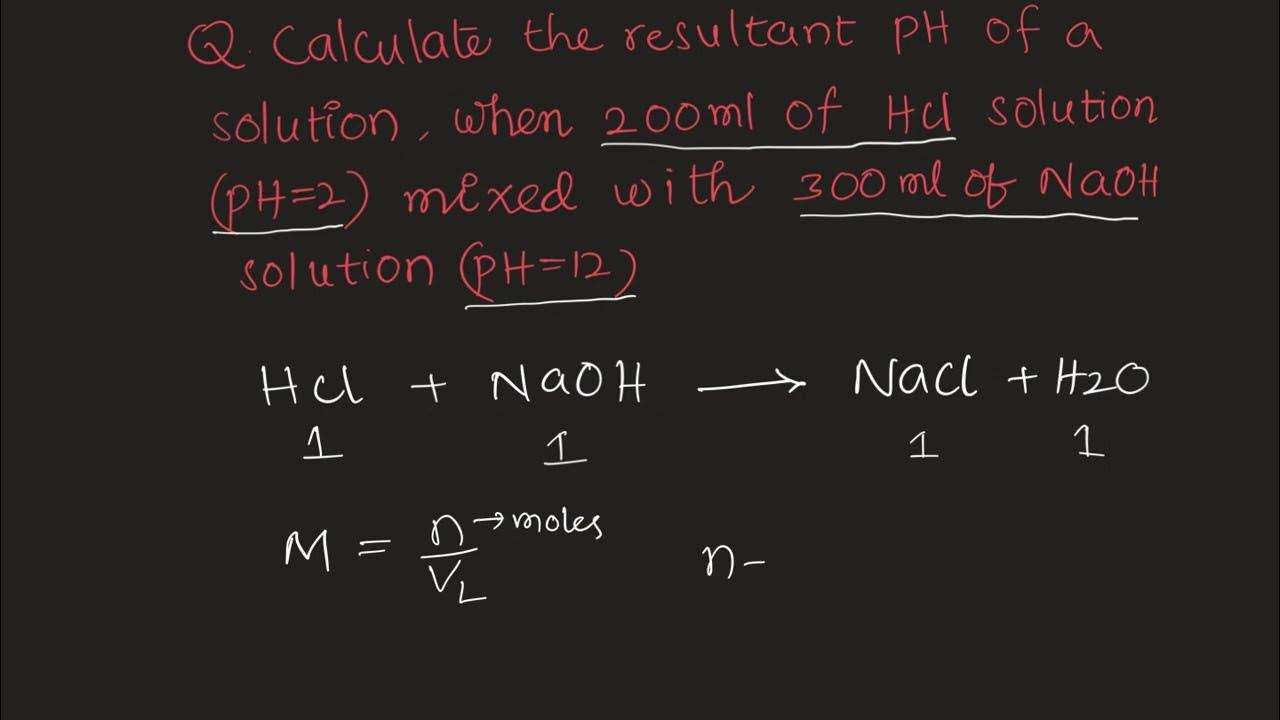 Q. Calculate the resultant pH of a
solution, when 200ml of Hcl solution
(pH=2) mixed with 300ml of NaOH
solution (pH=12)
Hcl + NaOH → Nacl + H2O
1 1 1 1
M = n/V_L → moles n-